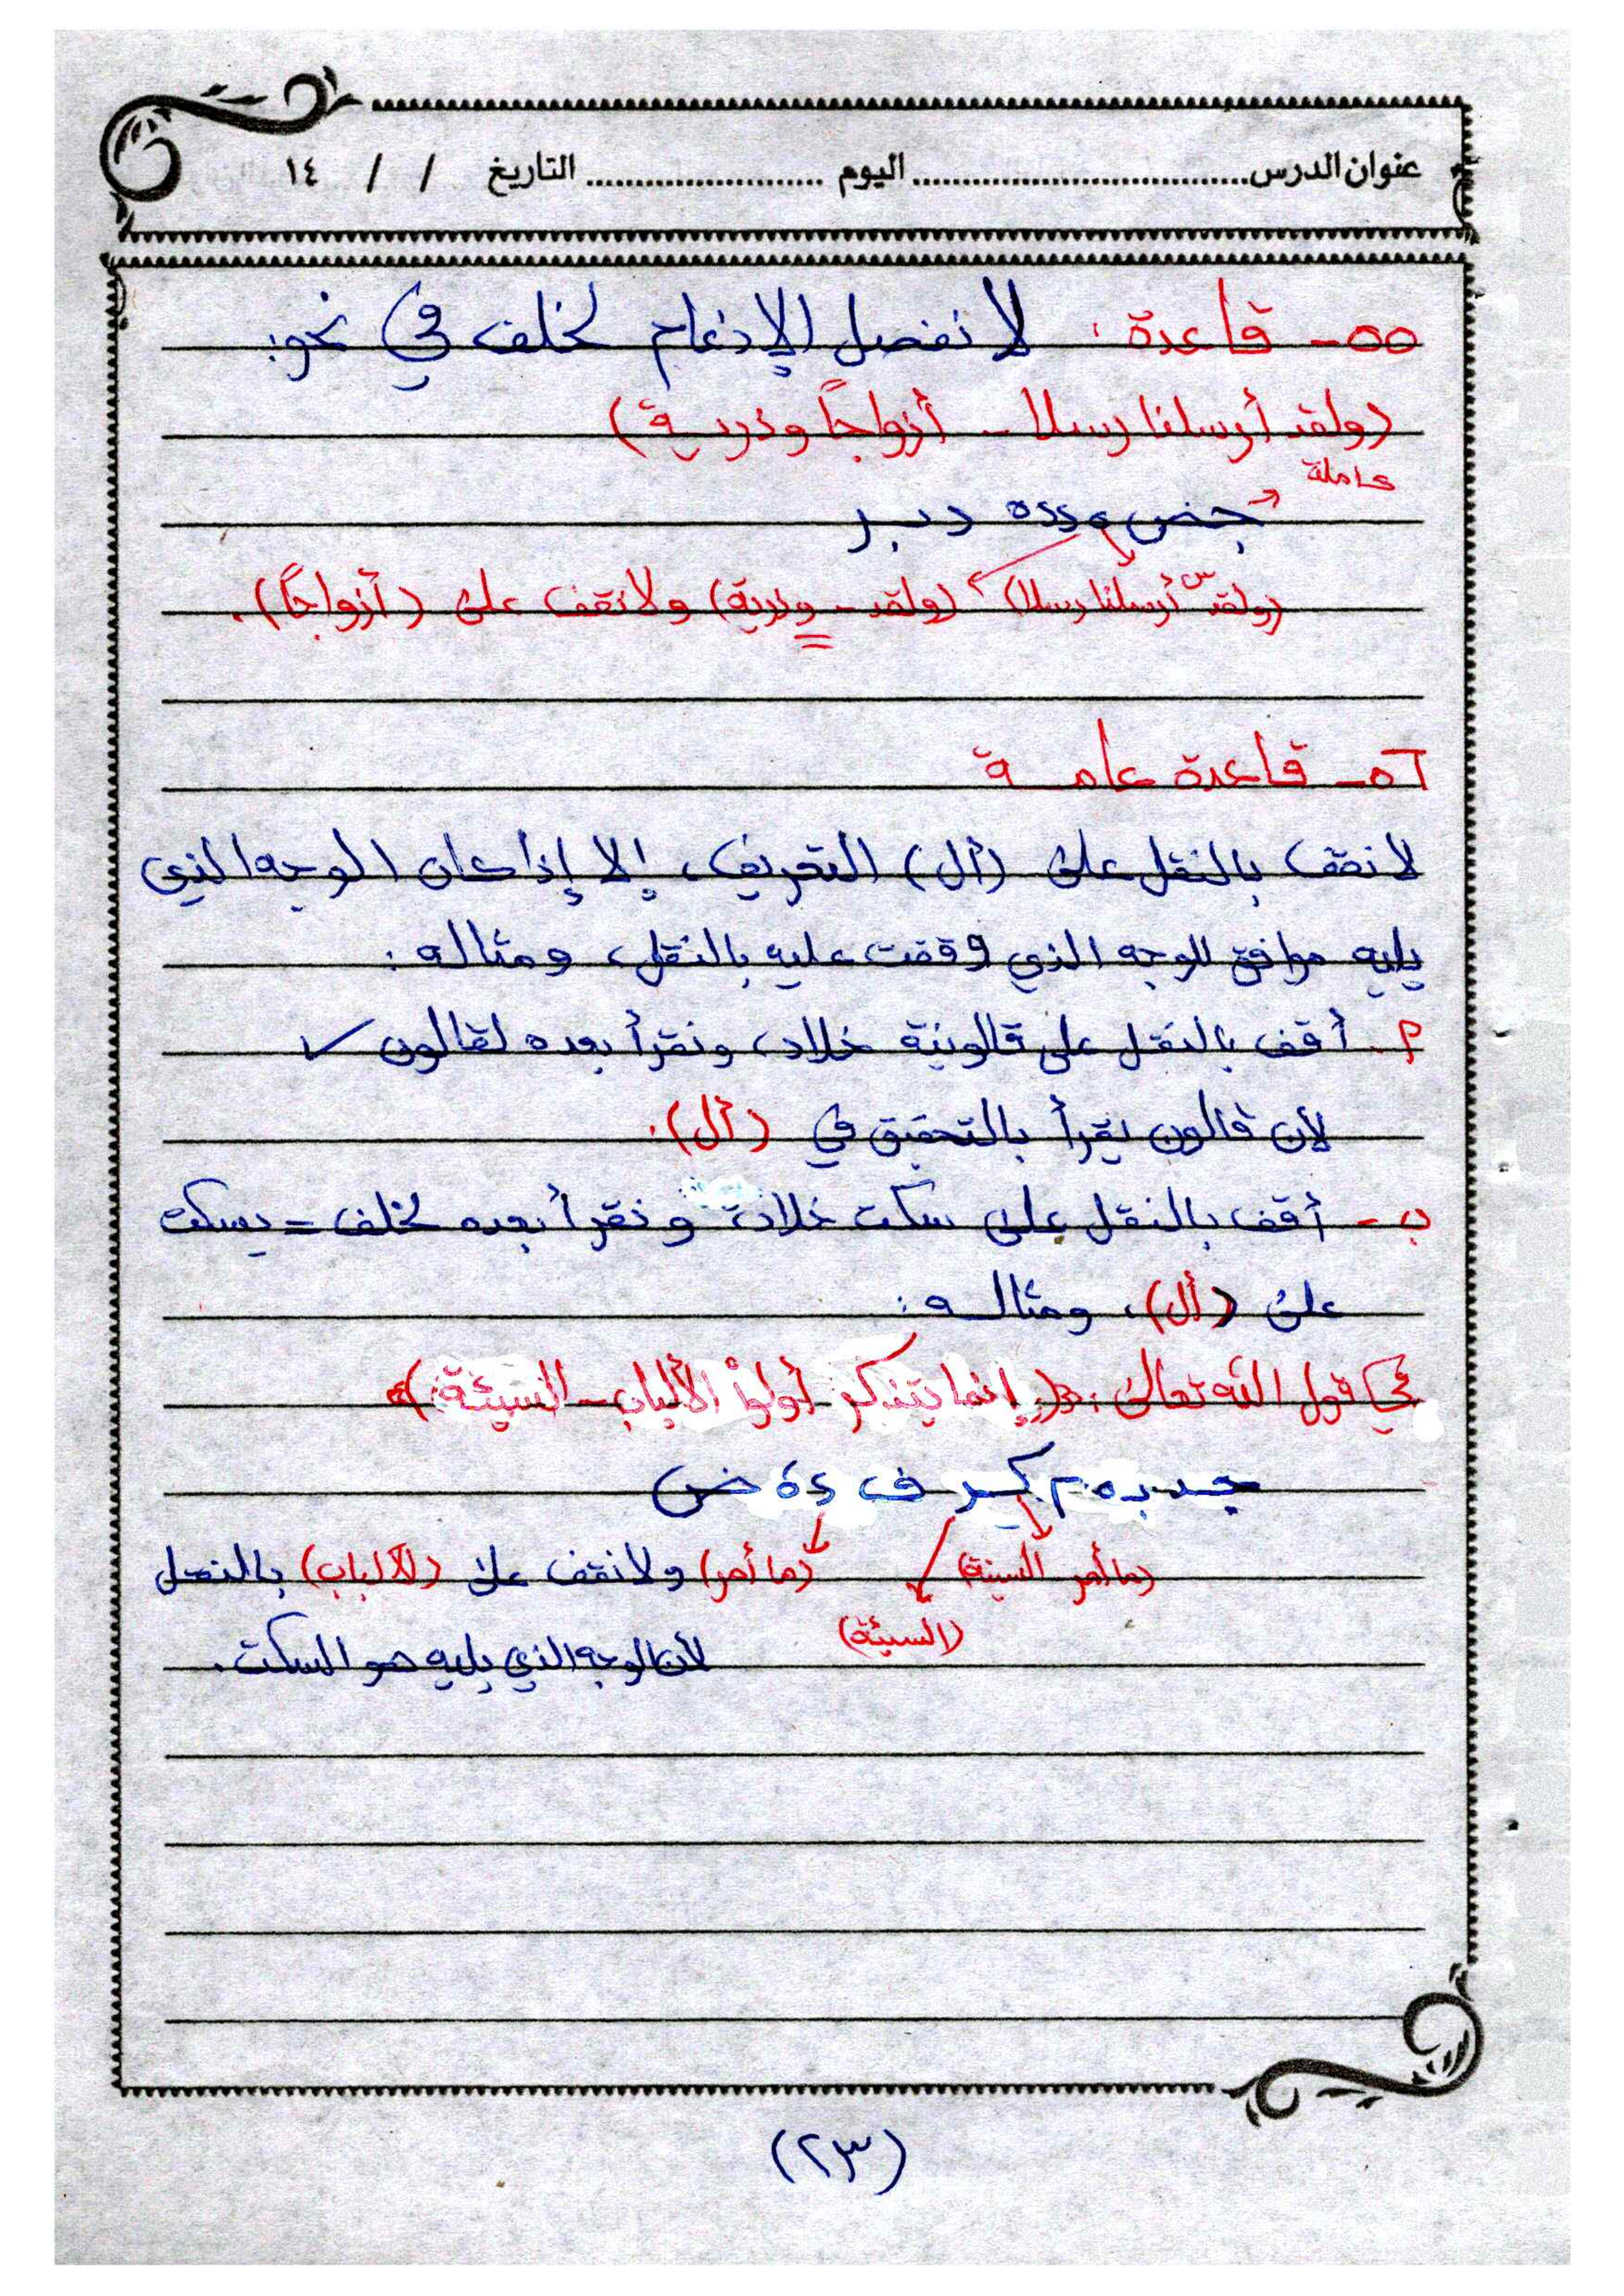 عنوان الدرس................................ اليوم ....................... التاريخ / / ١٤
٥٥- قاعدة: لا نفصل الإدغام لخلف في نحو:
(ولقد أرسلنا رسلا - أزواجاً وذرية)
كاملة
جض د بر
(ولقد س أرسلنا رسلا) (ولقد - وذرية) ولا نقف على (أزواجاً).
٥٦- قاعدة عامة
لا نقف بالنقل على (أل) التعريف، إلا إذا كان الوجه الذي
يليه موافق للوجه الذي وقفت عليه بالنقل، ومثاله:
أ- أقف بالنقل على قالونية خلاد، ونقرأ بعده لقالون ✓
لأن قالون يقرأ بالتحقيق في (أل).
ب- أقف بالنقل على سكت خلاد، ونقرأ بعده لخلف = يسكت
على (أل)، ومثاله:
في قول الله تعالى: ﴿إنما يتذكر أولوا الألباب - السيئة﴾
ف ض
(ما أمر السيئة) (ما أمر) ولا نقف على (الألباب) بالنقل
(السيئة) لأن الوجه الذي يليه هو السكت.
(٢٣)